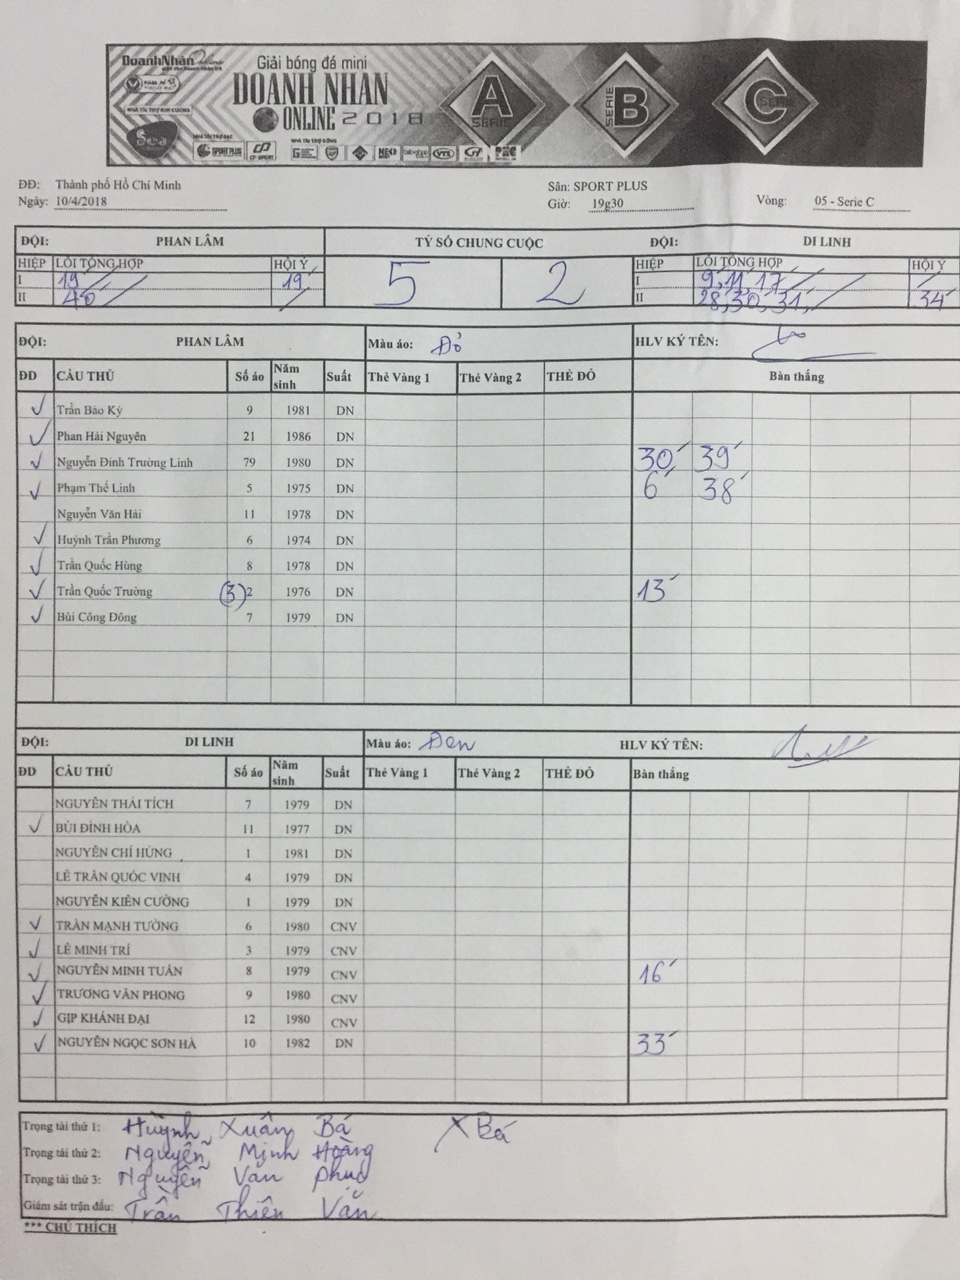 DoanhNhân Online
Giải bóng đá mini
DOANH NHAN
ONLINE 2018
NHÀ TÀI TRỢ KIM CƯƠNG
Sea
NHÀ TÀI TRỢ BẠC
SPORT PLUS
CP SPORT
NHÀ TÀI TRỢ ĐỒNG
NEO
VTC
A SERIE
SERIE B
C SERIE
ĐĐ: Thành phố Hồ Chí Minh Sân: SPORT PLUS
Ngày: 10/4/2018 Giờ: 19g30 Vòng: 05 - Serie C
ĐỘI: PHAN LÂM TỶ SỐ CHUNG CUỘC ĐỘI: DI LINH
HIỆP LỖI TỔNG HỢP HỘI Ý 5 2 HIỆP LỖI TỔNG HỢP HỘI Ý
I 19 / 19' I 9, 11, 17 / /
II 40 / / II 28, 30, 31, / 34'
ĐỘI: PHAN LÂM Màu áo: Đỏ HLV KÝ TÊN:
ĐD CẦU THỦ Số áo Năm sinh Suất Thẻ Vàng 1 Thẻ Vàng 2 THẺ ĐỎ Bàn thắng
✓ Trần Bảo Kỳ 9 1981 DN
✓ Phan Hải Nguyên 21 1986 DN
✓ Nguyễn Đình Trường Linh 79 1980 DN 30' 39'
✓ Phạm Thế Linh 5 1975 DN 6' 38'
Nguyễn Văn Hải 11 1978 DN
✓ Huỳnh Trần Phương 6 1974 DN
✓ Trần Quốc Hùng 8 1978 DN
✓ Trần Quốc Trường (3) 2 1976 DN 13'
✓ Bùi Công Đông 7 1979 DN
ĐỘI: DI LINH Màu áo: Đen HLV KÝ TÊN:
ĐD CẦU THỦ Số áo Năm sinh Suất Thẻ Vàng 1 Thẻ Vàng 2 THẺ ĐỎ Bàn thắng
NGUYỄN THÁI TÍCH 7 1979 DN
✓ BÙI ĐÌNH HÒA 11 1977 DN
NGUYỄN CHÍ HÙNG 1 1981 DN
LÊ TRẦN QUỐC VINH 4 1979 DN
NGUYỄN KIÊN CƯỜNG 1 1979 DN
✓ TRẦN MẠNH TƯỜNG 6 1980 CNV
✓ LÊ MINH TRÍ 3 1979 CNV
✓ NGUYỄN MINH TUẤN 8 1979 CNV 16'
✓ TRƯƠNG VĂN PHONG 9 1980 CNV
✓ GIP KHÁNH ĐẠI 12 1980 CNV
✓ NGUYỄN NGỌC SƠN HÀ 10 1982 DN 33'
Trọng tài thứ 1: Huỳnh Xuân Bá XBá
Trọng tài thứ 2: Nguyễn Minh Hoàng
Trọng tài thứ 3: Nguyễn Văn Phục
Giám sát trận đấu: Trần Thiên Vấn
*** CHÚ THÍCH